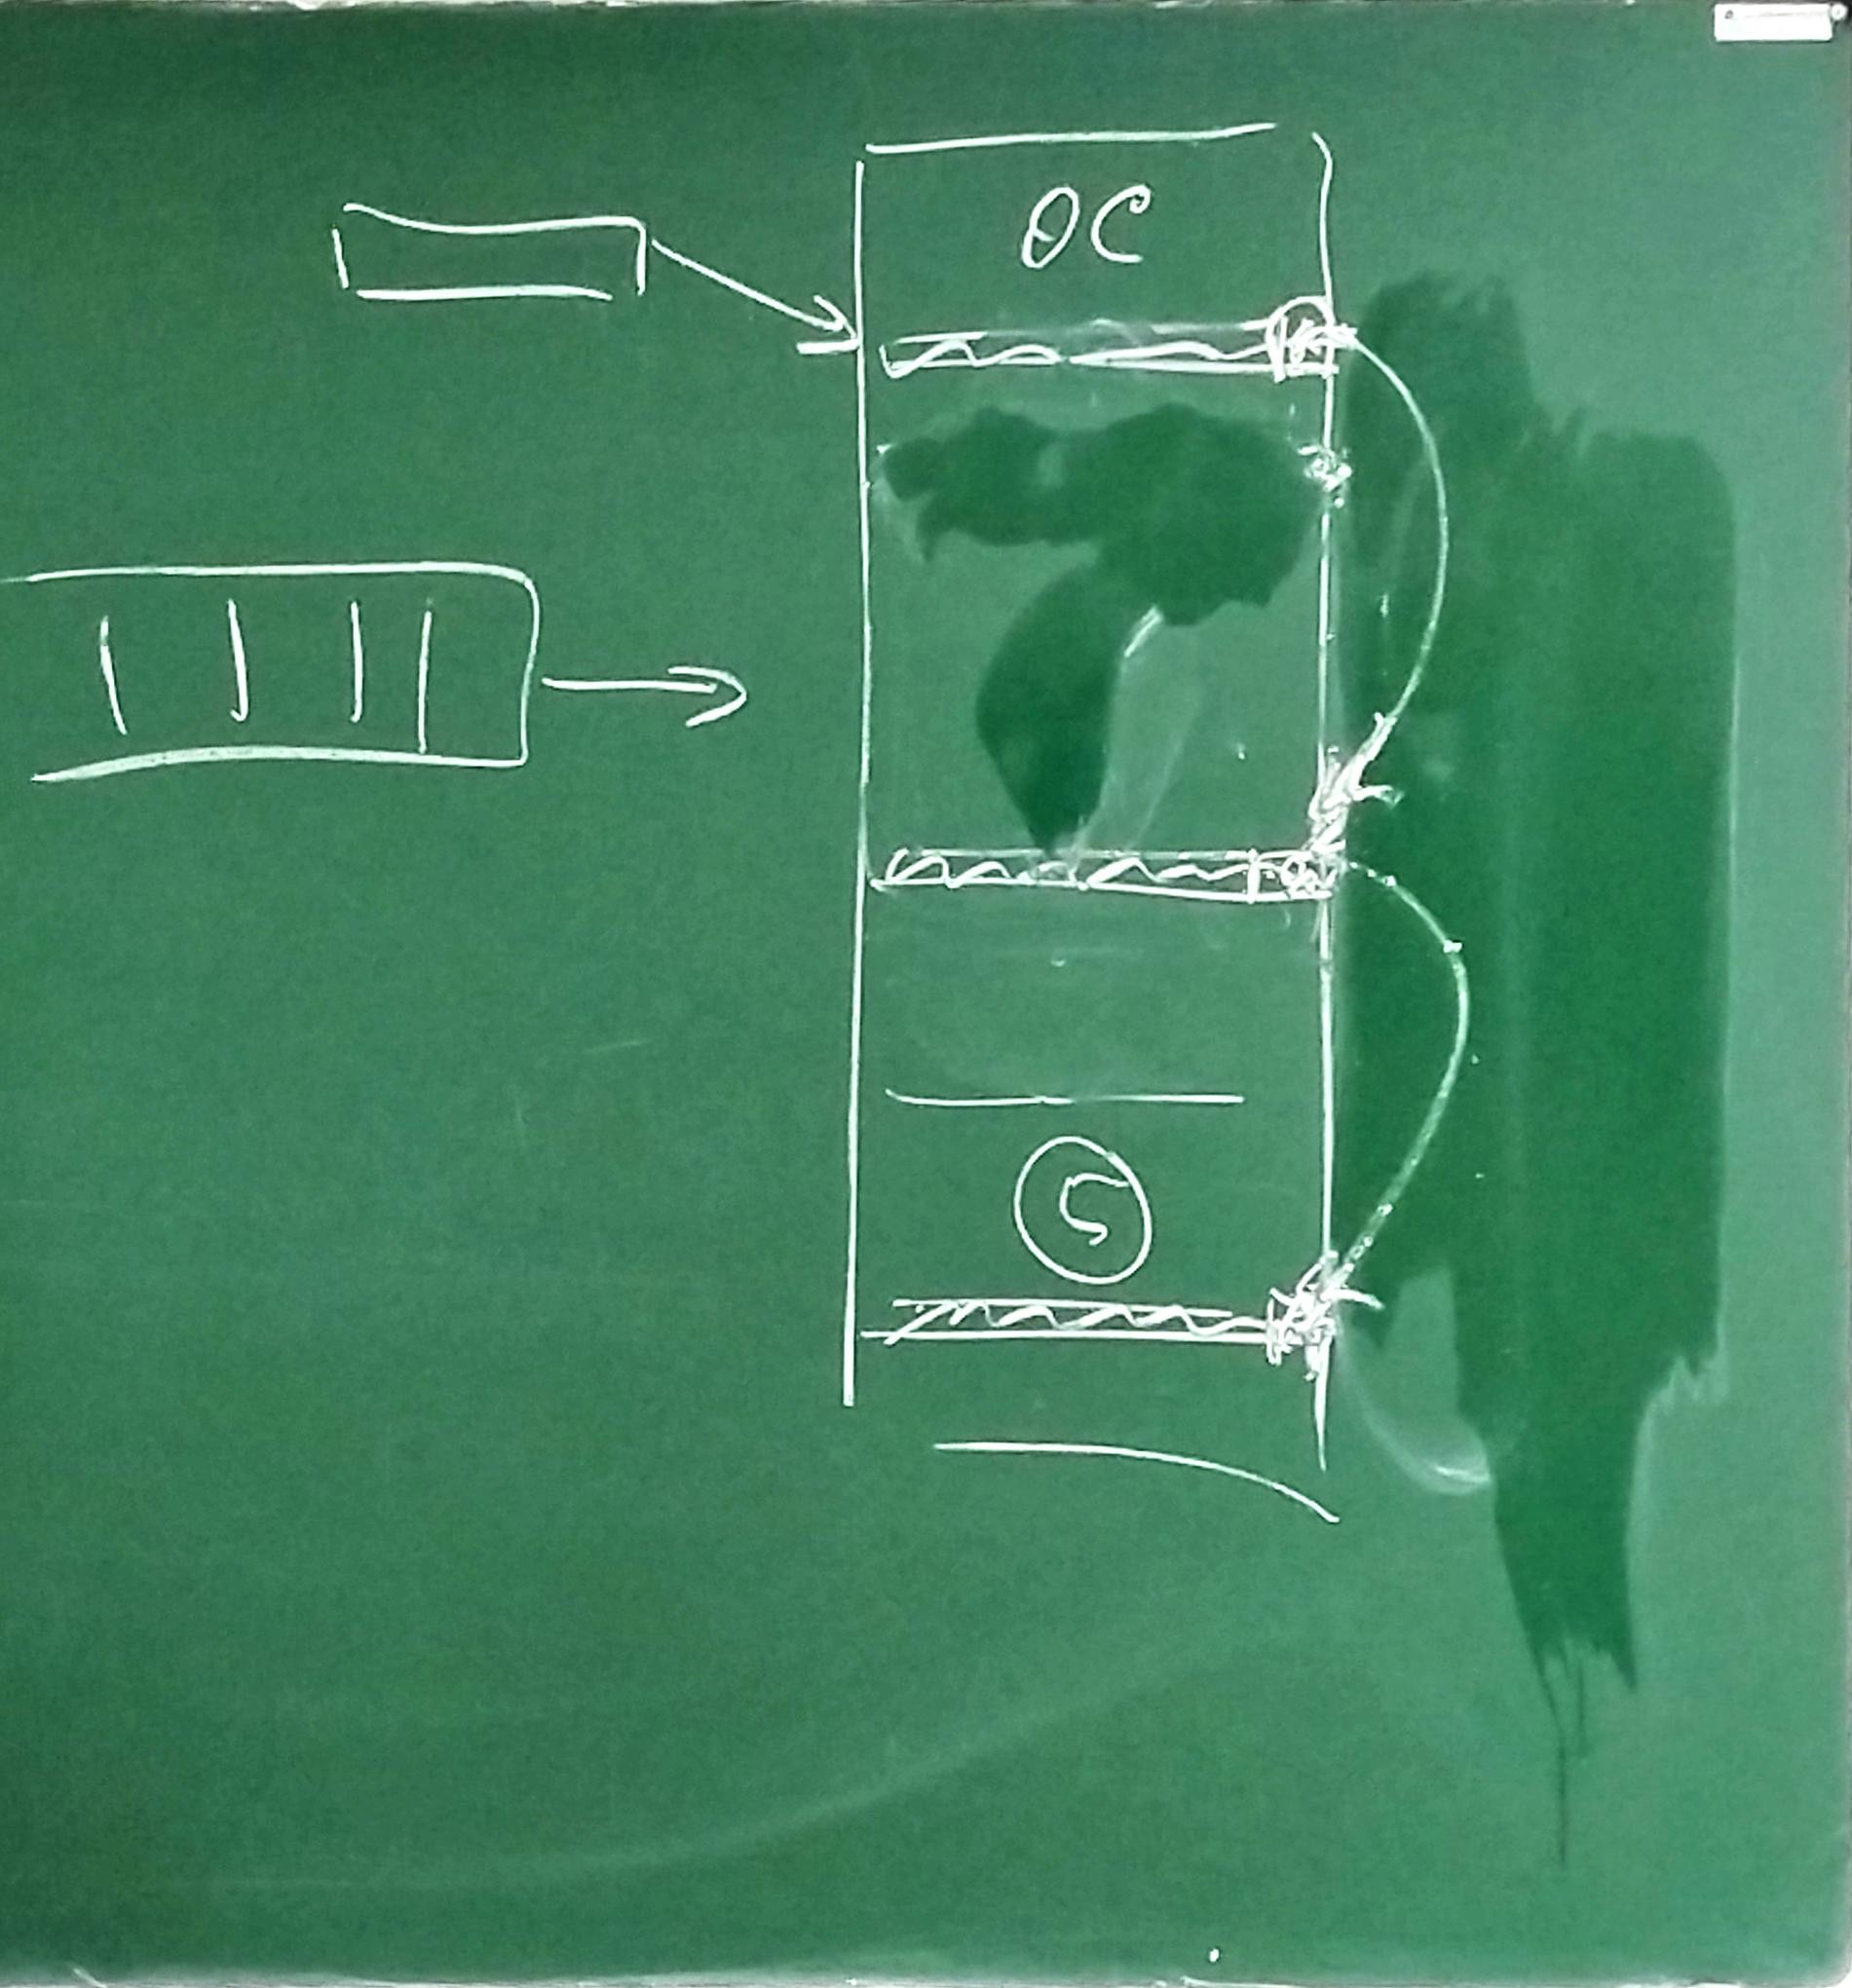 ОС
5